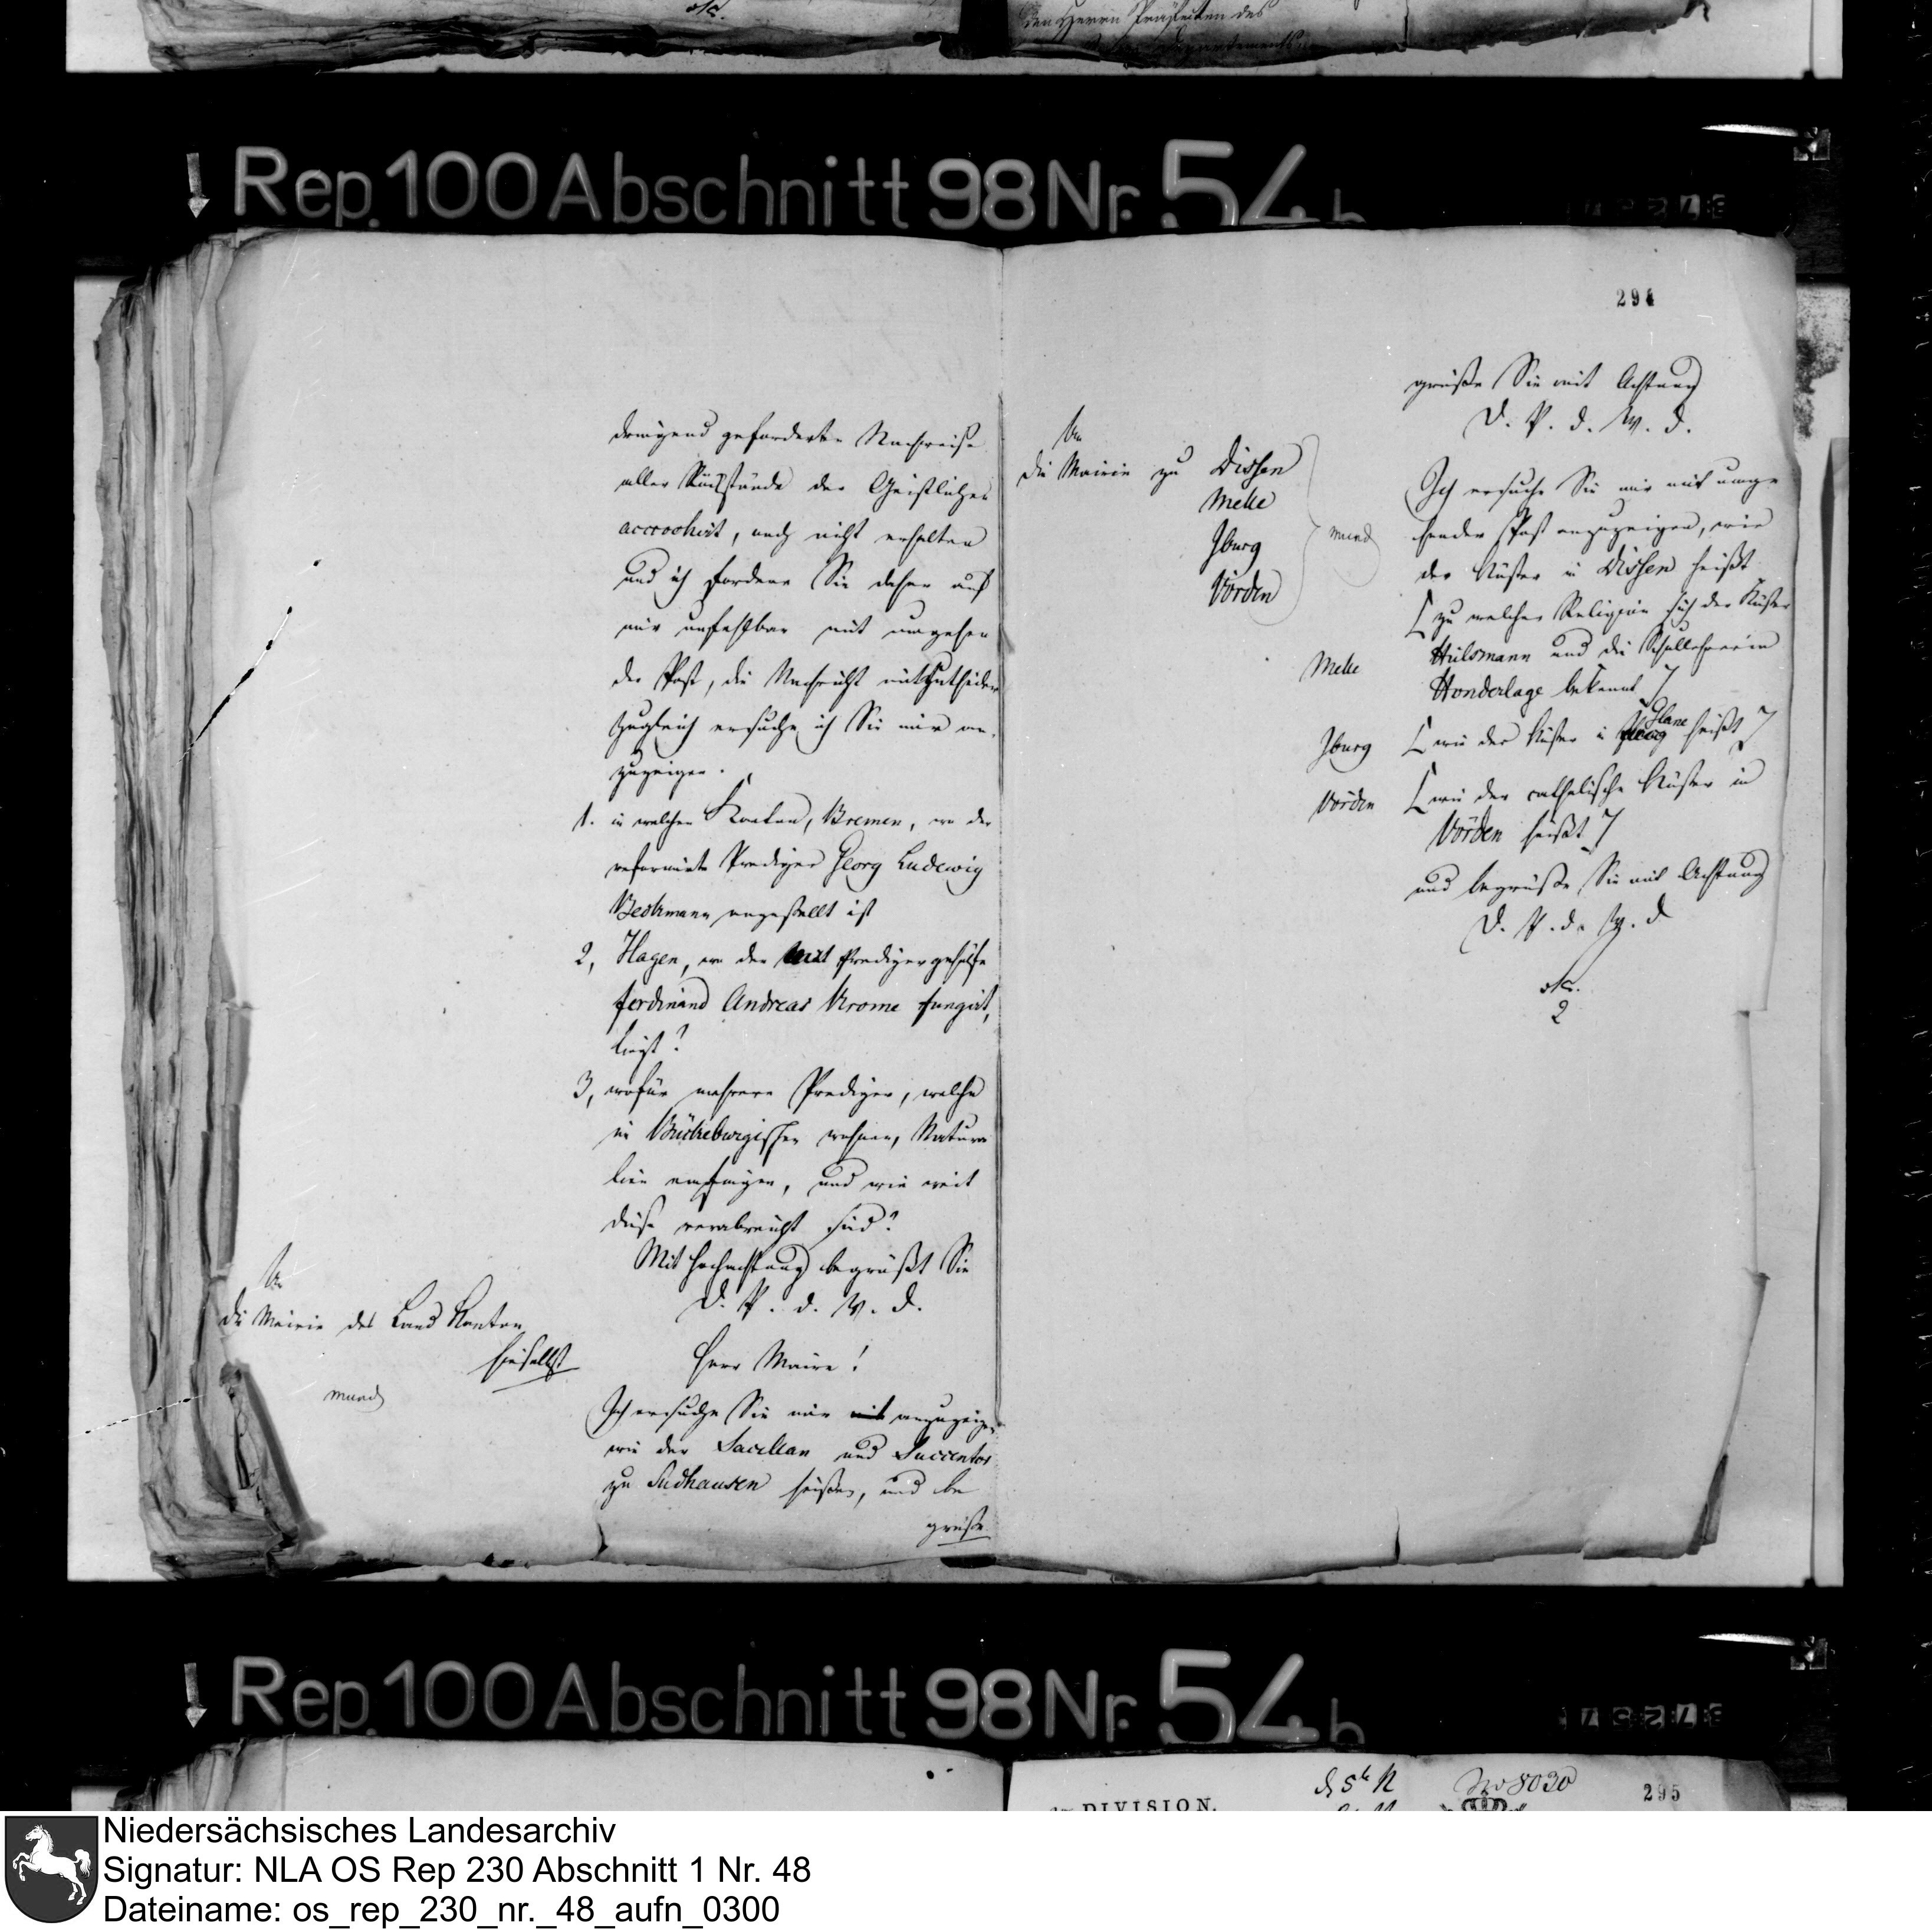 den Herrn Präfecten des
Rep. 100 Abschnitt 98 Nr. 54 b
294
dringend geforderte Nachweise
aller Rückstände der Geistlichen
accrochirt, noch nicht erhalten
und ich fordere Sie daher auf
mir unfehlbar mit umgehen
der Post, die Nachricht
zugleich ersuche ich Sie mir an-
zuzeigen.
1. in welchen Kanton, Bremen, wo der
reformirte Prediger Georg Ludewig
Beckmann angestellt ist
2, Hagen, wo der Predigergehülfe
Ferdinand Andreas Krome fungirt,
liegt?
3, wofür mehrere Prediger, welche
in Bückeburgischen wohnen, Natura
lien empfingen, und wie weit
diese verabreicht sind?
Mit Hochachtung begrüßt Sie
D. P. d. W. D.
An
die Mairie des Land Kanton
hieselbst
mund
Herr Maire!
Ich ersuche Sie mir anzuzeigen
wie der Sacellan und Succentor
zu Sudhausen heißen, und be
grüße
grüße Sie mit Achtung
D. P. d. W. D.
An
die Mairie zu Dissen
Melle
Iburg
Vörden
mund
Ich ersuche Sie mir mit umge
hender Post anzuzeigen, wie
der Küster in Dissen heißt
[ zu welcher Religion sich der Küster
Melle
Hülsmann und die Schullehrerin
Honderlage bekennt ]
Iburg [ wie der Küster in Glane heißt ]
Vörden [ wie der catholische Küster in
Vörden heißt ]
und begrüße Sie mit Achtung
D. P. d. W. d
2
Rep. 100 Abschnitt 98 Nr. 54 b
No 8030
295
DIVISION.
Niedersächsisches Landesarchiv
Signatur: NLA OS Rep 230 Abschnitt 1 Nr. 48
Dateiname: os_rep_230_nr._48_aufn_0300